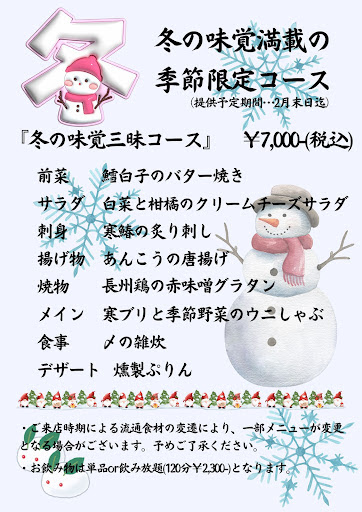 冬
冬の味覚満載の
季節限定コース
(提供予定期間…2月末日迄)
『冬の味覚三昧コース』 ¥7,000-(税込)
前菜 鱈白子のバター焼き
サラダ 白菜と柑橘のクリームチーズサラダ
刺身 寒鰆の炙り刺し
揚げ物 あんこうの唐揚げ
焼物 長州鶏の赤味噌グラタン
メイン 寒ブリと季節野菜のウニしゃぶ
食事 〆の雑炊
デザート 燻製ぷりん
・ご来店時期による流通食材の変遷により、一部メニューが変更
となる場合がございます。予めご了承ください。
・お飲み物は単品or飲み放題(120分¥2,300-)となります。